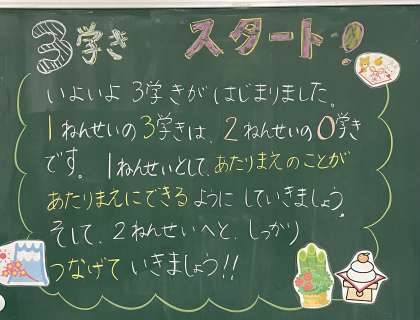 3学き スタート!
いよいよ 3学きが はじまりました。
1ねんせいの3学きは、2ねんせいの0学き
です。1ねんせいとして、あたりまえのことが
あたりまえにできる ように していきましょう。
そして、2ねんせいへと、しっかり
つなげて いきましょう!!